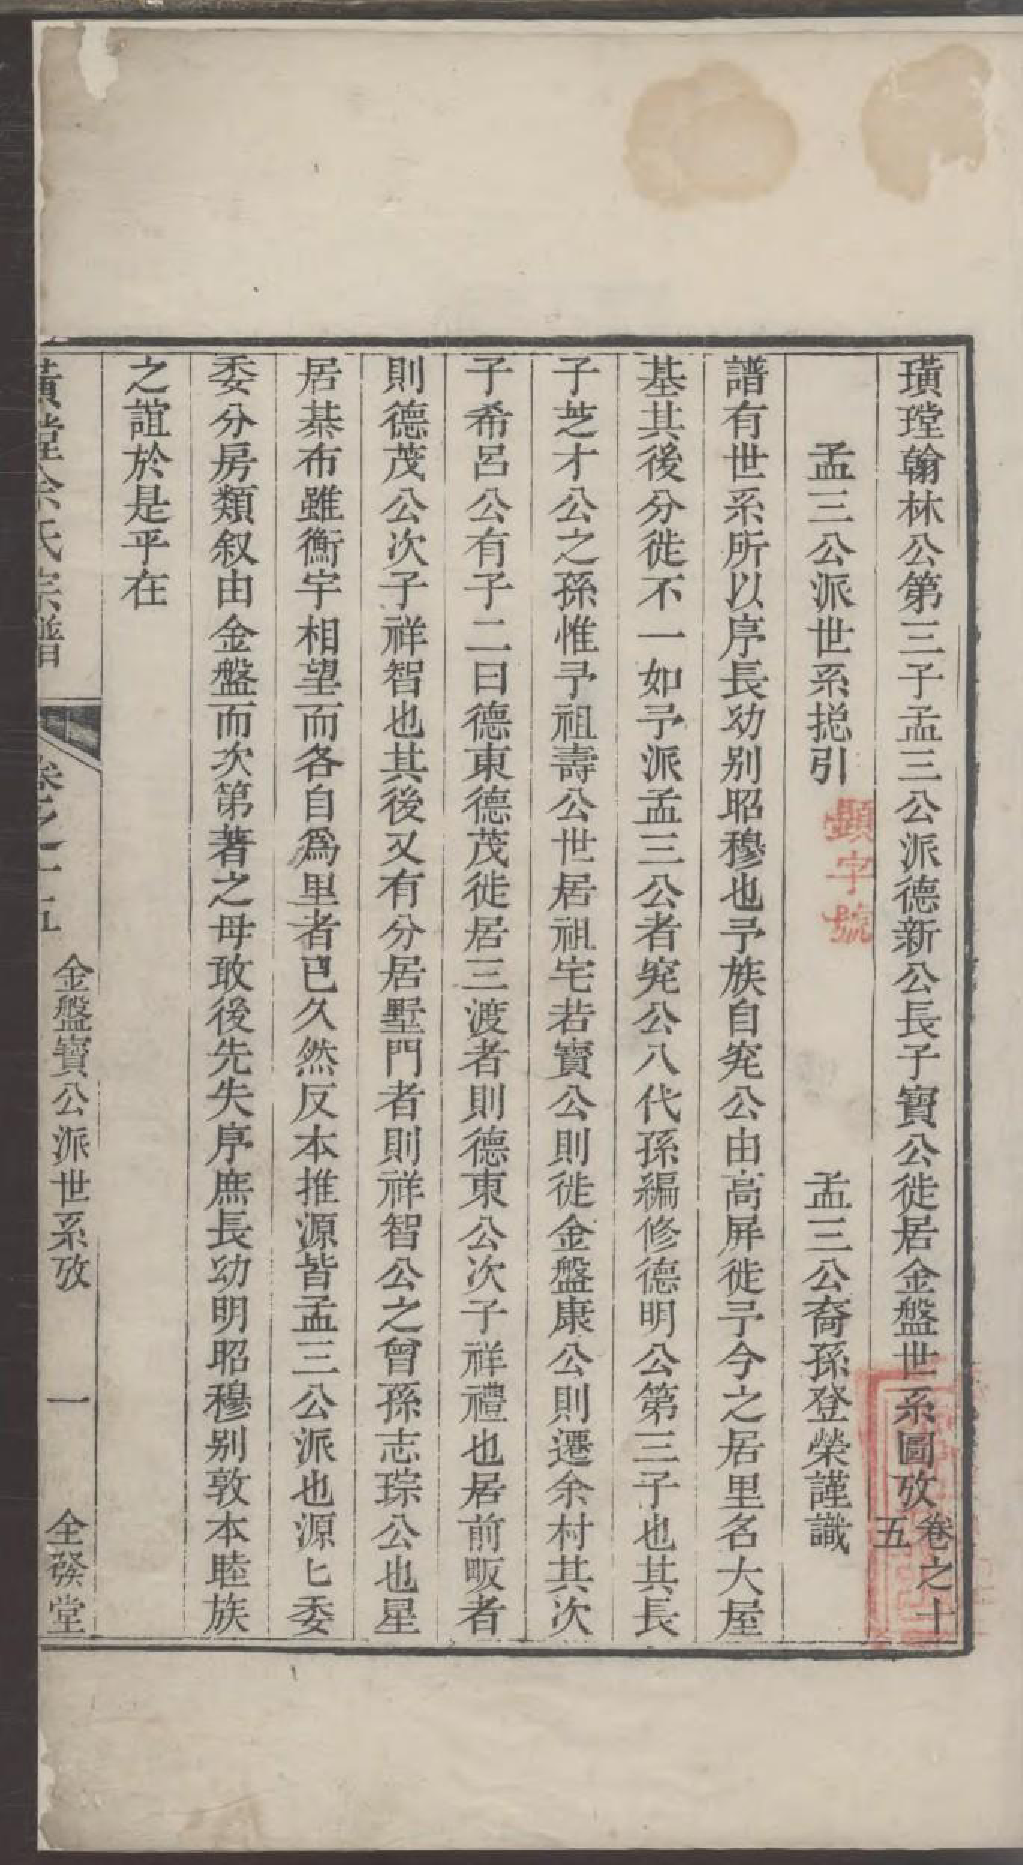 璜瑝翰林公第三子孟三公派德新公長子寶公徙居金盤世系圖攷卷之十五
孟三公派世系捴引 孟三公裔孫登榮謹識
顯字號
譜有世系所以序長幼别昭穆也予族自兖公由高屏徙予今之居里名大屋
基其後分徙不一如予派孟三公者兖公八代孫編修德明公第三子也其長
子芝才公之孫惟予祖壽公世居祖宅若寶公則徙金盤康公則遷余村其次
子希呂公有子二曰德東德茂徙居三渡者則德東公次子祥禮也居前畈者
則德茂公次子祥智也其後又有分居墅門者則祥智公之曾孫志琮公也星
居棊布雖衡宇相望而各自爲里者已久然反本推源皆孟三公派也源匕委
委分房類叙由金盤而次第著之毋敢後先失序庶長幼明昭穆别敦本睦族
之誼於是乎在
余氏宗譜
卷之十五
金盤寶公派世系攷
一
全發堂